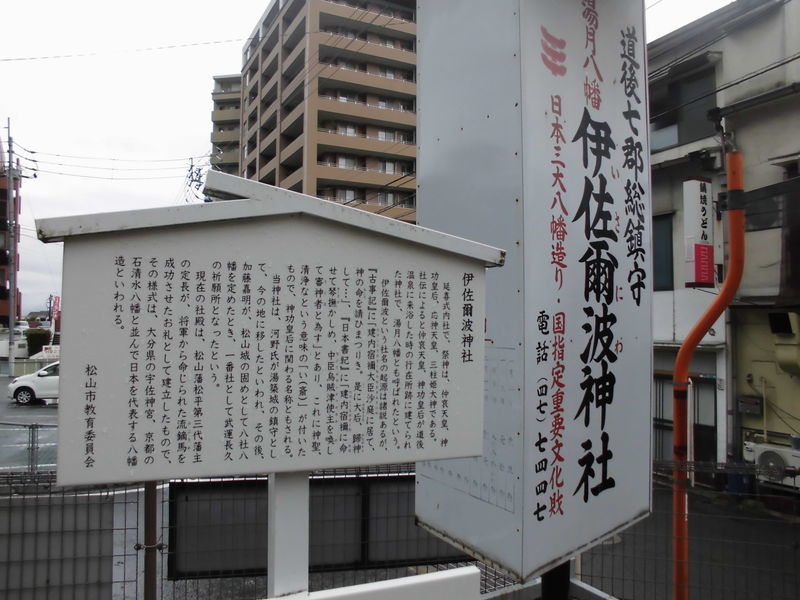 伊佐爾波神社
延喜式内社で、祭神は、仲哀天皇、神
功皇后、応神天皇、三柱姫大神である。
社伝によると仲哀天皇、神功皇后が道後
温泉に来浴した時の行在所跡に建てられ
た神社で、湯月八幡とも呼ばれたという。
伊佐爾波という社名の起源は諸説あるが、
『古事記』に「建内宿禰大臣沙庭に居て、
神の命を請ひまつりき。是に大后、歸神
して…」、『日本書記』に「建内宿禰に命
せて琴撫かしめ、中臣烏賊津使主を喚し
て審神者と為す」とあり、これに神聖、
清浄なという意味の「い(斎)」が付いた
もので、神功皇后に関わる名称ともされる。
当神社は、河野氏が湯築城の鎮守とし
て、今の地に移したといわれ、その後、
加藤嘉明が、松山城の固めとして八社八
幡を定めたとき、一番社として武運長久
の祈願所となったという。
現在の社殿は、松山藩松平第三代藩主
の定長が、将軍から命じられた流鏑馬を
成功させたお礼として建立したもので、
その様式は、大分県の宇佐神宮、京都の
石清水八幡と並んで日本を代表する八幡
造といわれる。
松山市教育委員会
道後七郡総鎮守
湯月八幡
いさにわ
伊佐爾波神社
日本三大八幡造り・国指定重要文化財
電話(四七)七四四七
鍋焼うどん